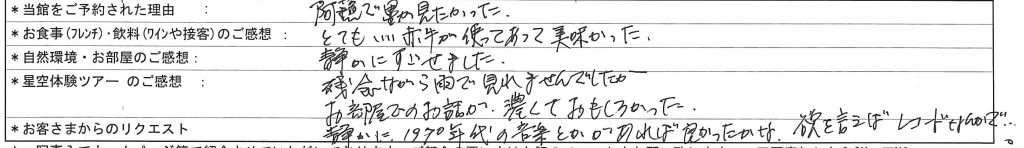 ＊当館をご予約された理由　： 阿蘇で星が見たかった．
＊お食事(フレンチ)・飲料(ワインや接客)のご感想　： とてもいい赤牛が使ってあって美味かった．
＊自然環境・お部屋のご感想： 静かにすごせました．
＊星空体験ツアー のご感想： 残念ながら雨で見れませんでしたが
お部屋でのお話が、濃くておもしろかった．
＊お客さまからのリクエスト 静かに、1970年代の音楽とかがあれば良かったかな． 欲を言えば レコードなんかで…。